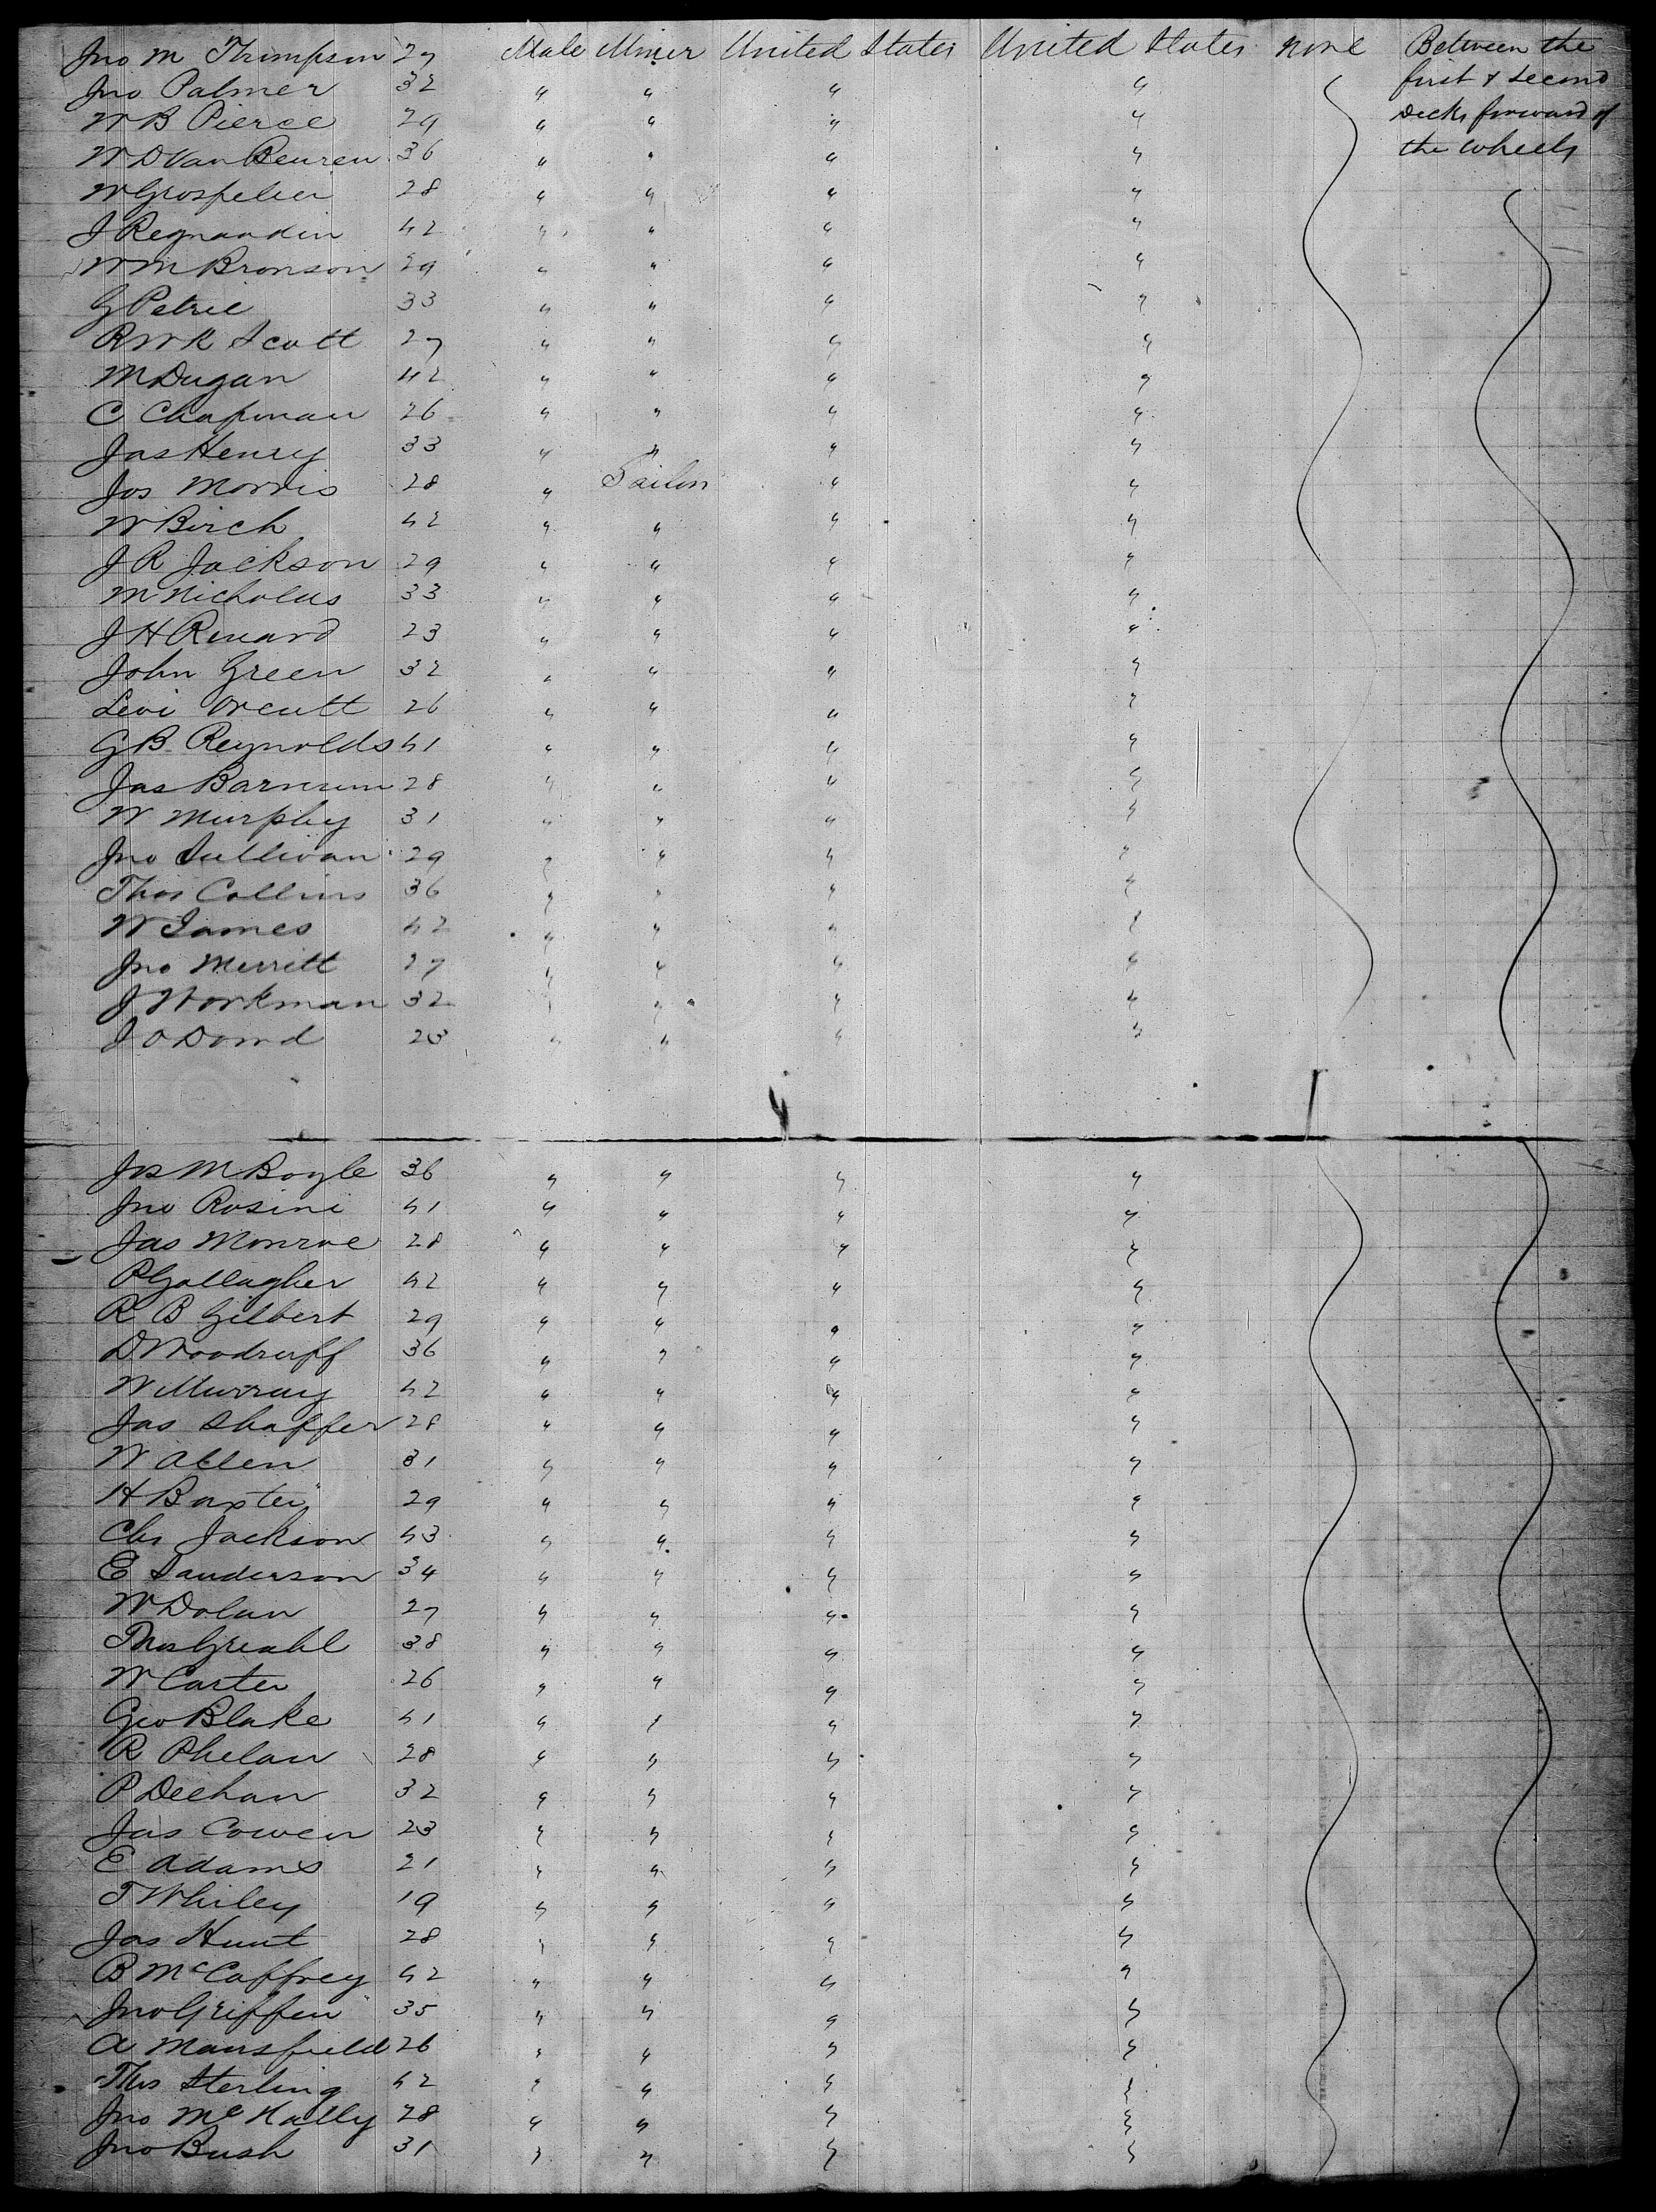 Jno M Thompson 27 Male Miner United States United States none Between the
Jno Palmer 32 " " " " first & second
W B Pierce 29 " " " " Decks forward of
W D Van Beuren 36 " " " " the wheels
W Grospelier 28 " " " "
J Regnaudin 42 " " " "
Wm Bronson 29 " " " "
G Petrie 33 " " " "
R W K Scott 27 " " " "
M Dugan 42 " " " "
C Chapman 26 " " " "
Jas Henry 33 " " " "
Jos Morris 28 " Sailor " "
W Birch 42 " " " "
J R Jackson 29 " " " "
M Nicholus 33 " " " "
J H Renard 23 " " " "
John Green 32 " " " "
Levi Orcutt 26 " " " "
G B Reynolds 41 " " " "
Jas Barnum 28 " " " "
W Murphy 31 " " " "
Jno Sullivan 29 " " " "
Thos Collins 36 " " " "
W James 42 " " " "
Jno Merritt 27 " " " "
J Workman 32 " " " "
J O Dowd 23 " " " "
Jas M Boyle 36 " " " "
Jno Rosine 41 " " " "
Jas Monroe 28 " " " "
P Gallagher 42 " " " "
R B Gilbert 29 " " " "
D Woodruff 36 " " " "
W Murray 42 " " " "
Jas Shaffer 28 " " " "
W Allen 31 " " " "
H Baxter 29 " " " "
Chs Jackson 43 " " " "
E Sanderson 34 " " " "
W Dolan 27 " " " "
Thos Greahl 38 " " " "
W Carter 26 " " " "
Geo Blake 41 " " " "
R Phelan 28 " " " "
P Deehan 32 " " " "
Jas Cowen 23 " " " "
E Adams 21 " " " "
T Whiley 19 " " " "
Jas Hunt 28 " " " "
B McCaffrey 42 " " " "
Jno Griffen 35 " " " "
A Mansfield 26 " " " "
Thos Sterling 42 " " " "
Jno McNally 28 " " " "
Jno Bush 31 " " " "